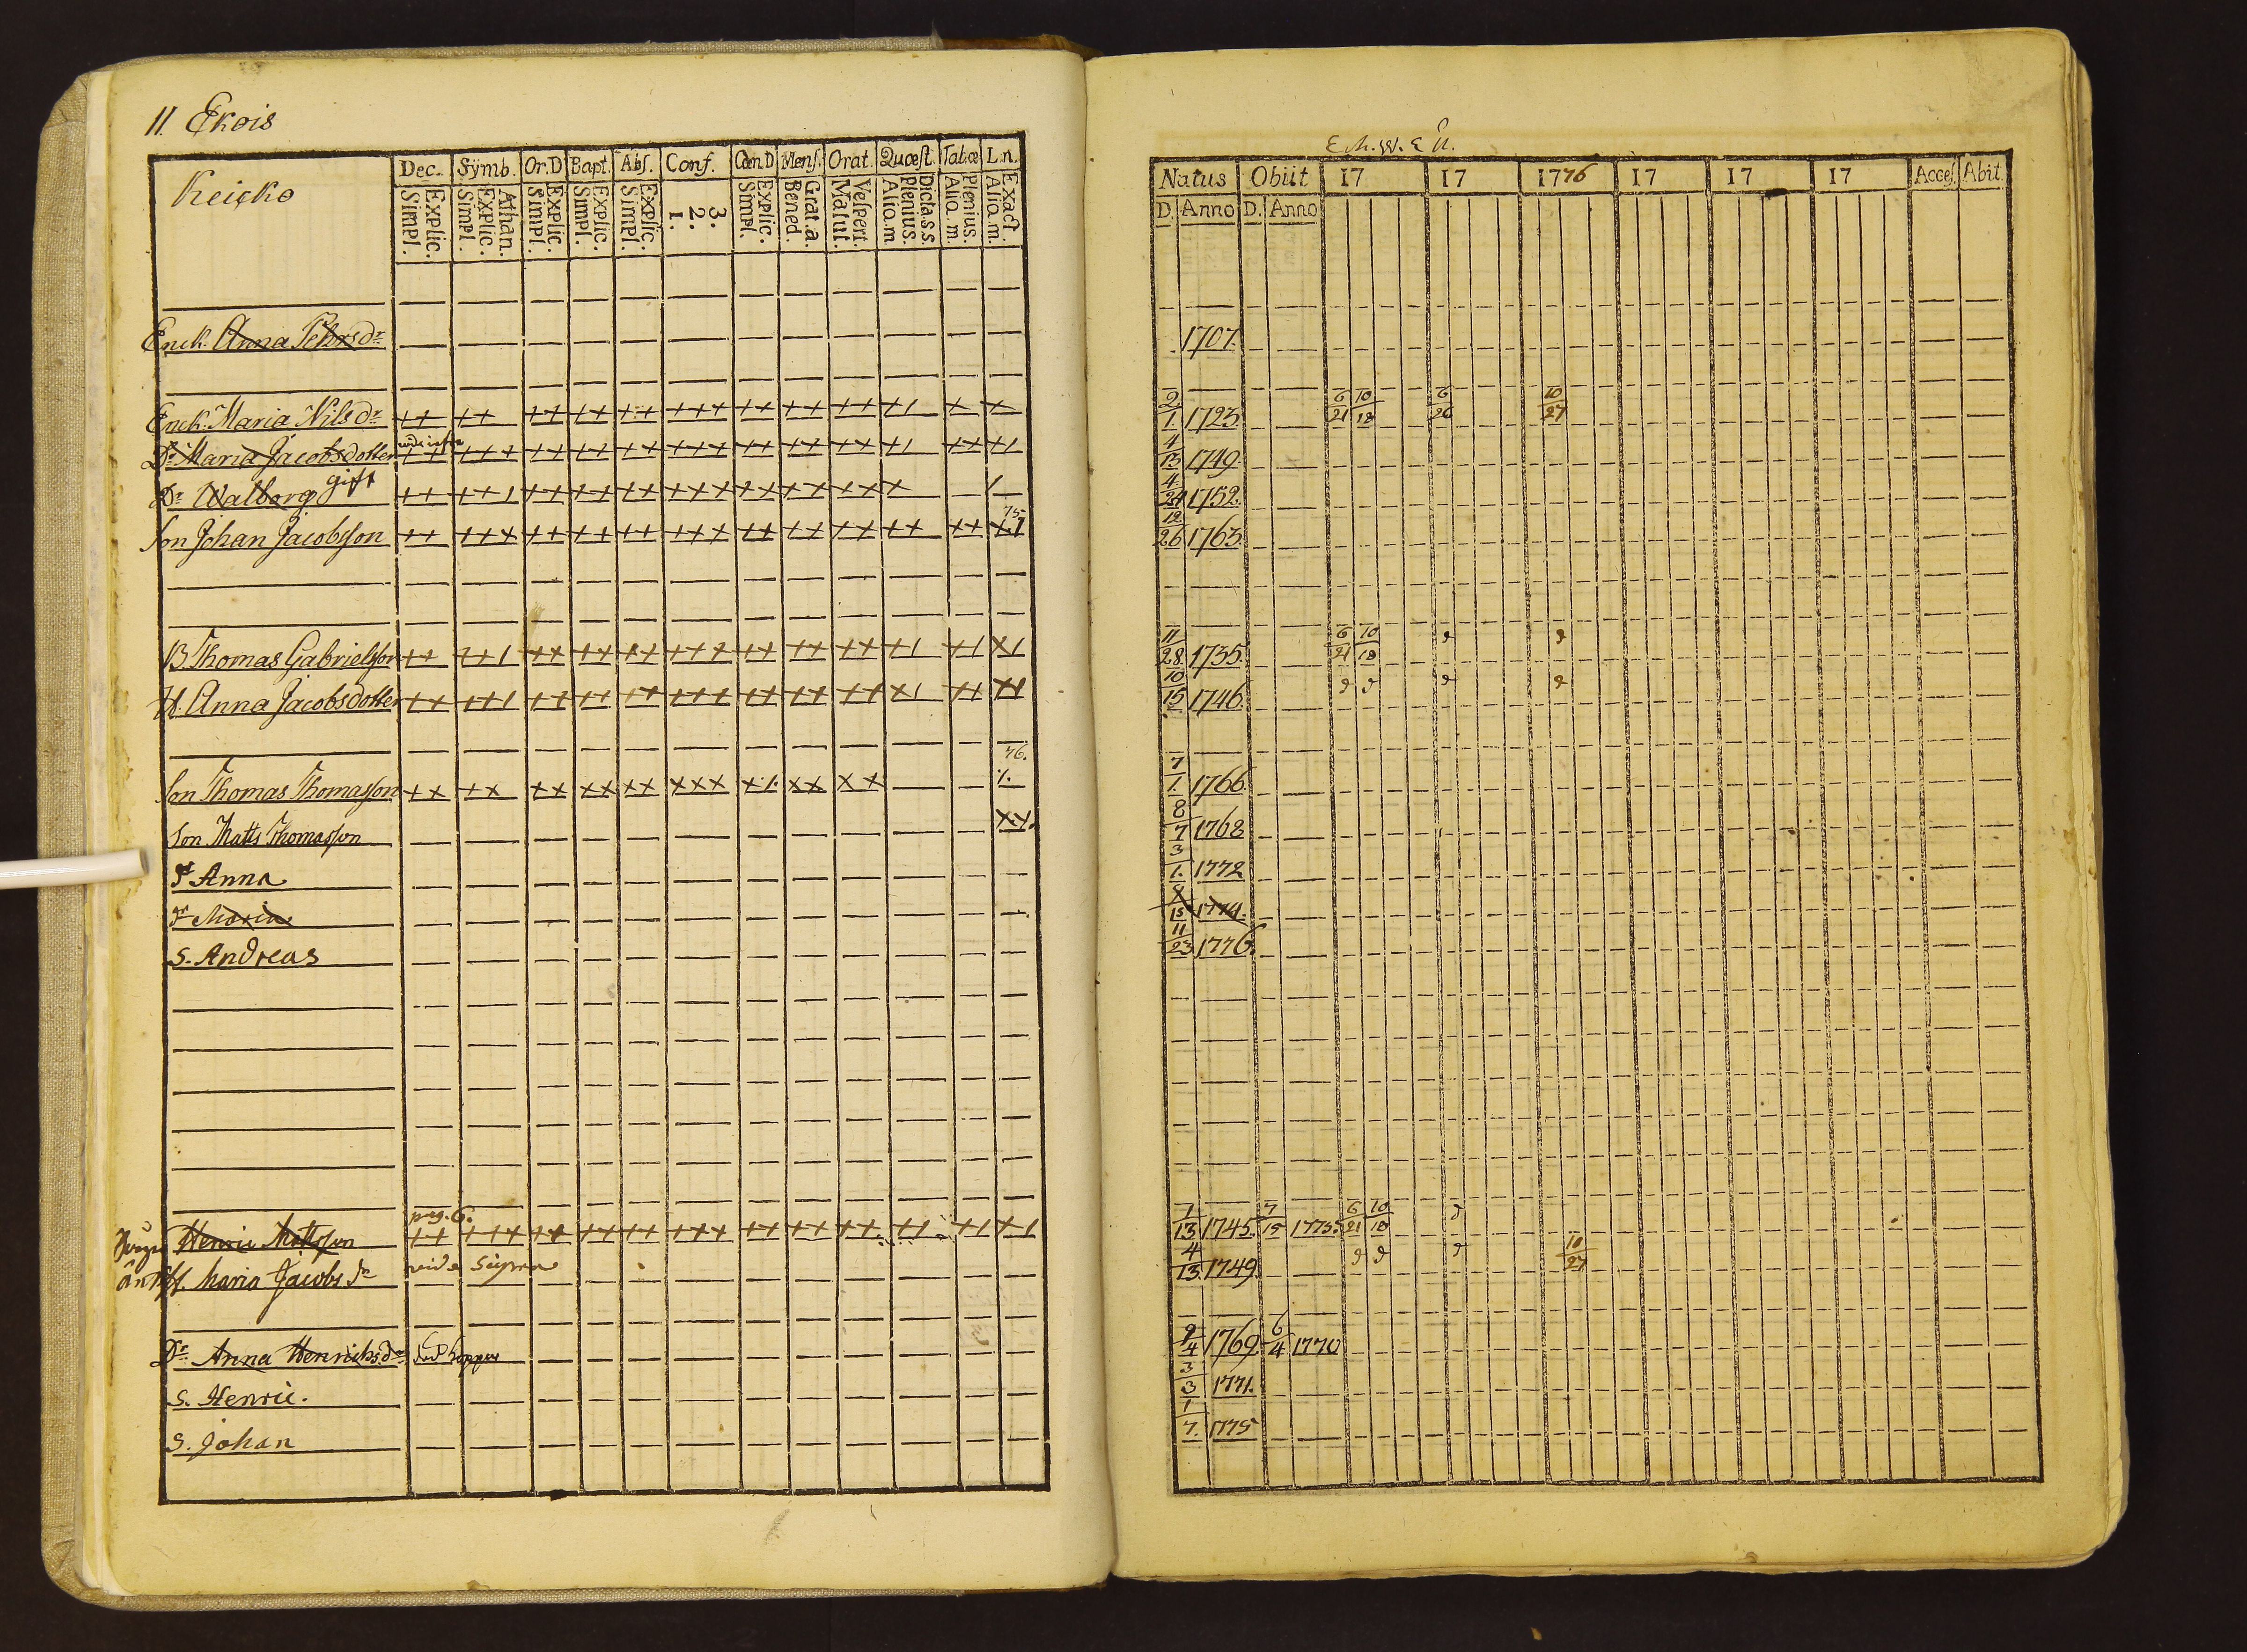 11. Ekois
Keicko
Dec. Symb. Or.D Bapt. Abſ. Conf. Cœn.D Menſ. Orat. Quæſt. Tabæ L.n.
Simpl. Explic. Simpl. Explic. Athan. Simpl. Explic. Simpl. Explic. Simpl. Explic. 1. 2. 3. Simpl. Explic. Bened. Grat.a. Matut. Veſpert. Aliq.m. Plenius. Dicta.s.s. Aliq.m. Plenius. Aliq.m. Exact.
Enck. Anna Pehrsdr
Enck. Maria Nilsdr ++ ++ ++ ++ ++ +++ ++ ++ ++ +1 + +
Dr Maria Jacobsdotter ++ +++ ++ ++ ++ +++ ++ ++ ++ +1 ++ +1
Dr Walborg gift ++ ++1 ++ ++ ++ +++ ++ ++ ++ +
75
Son Johan Jacobsson ++ +++ ++ ++ ++ +++ ++ ++ ++ ++ ++ +1
B. Thomas Gabrielsson ++ ++1 ++ ++ ++ +++ ++ ++ ++ +1 +1 X1
H. Anna Jacobsdotter ++ ++1 ++ ++ ++ +++ ++ ++ ++ +1 ++ ++
76.
Son Thomas Thomasson ++ ++ ++ ++ ++ +++ +1. ++ ++
Son Matts Thomasson
dr Anna
dr Maria
S. Andreas
pag. 6.
Henric Mattsson ++ +++ ++ ++ ++ +++ ++ ++ ++ +1 +1 +1
H. Maria Jacobsdr vide Supra
Dr Anna Henrichsdr
S. Henric.
S. Johan
Natus Obiit 17 17 1776 17 17 17 Acceſ. Abit
D. Anno D. Anno
1707.
2/1 1723 6/21 10/18 6/26 10/27
4/13 1749
4/24 1752.
12/26 1763
11/28 1735 6/21 10/18
10/15 1746
7/1. 1766
8/7 1768
3/1. 1772
8/15 1774.
11/23 1776.
1/13 1745. 7/15 1775. 6/21 10/18
4/13. 1749 10/27
9/4 1769 6/4 1770
3/3 1771.
1/7. 1775